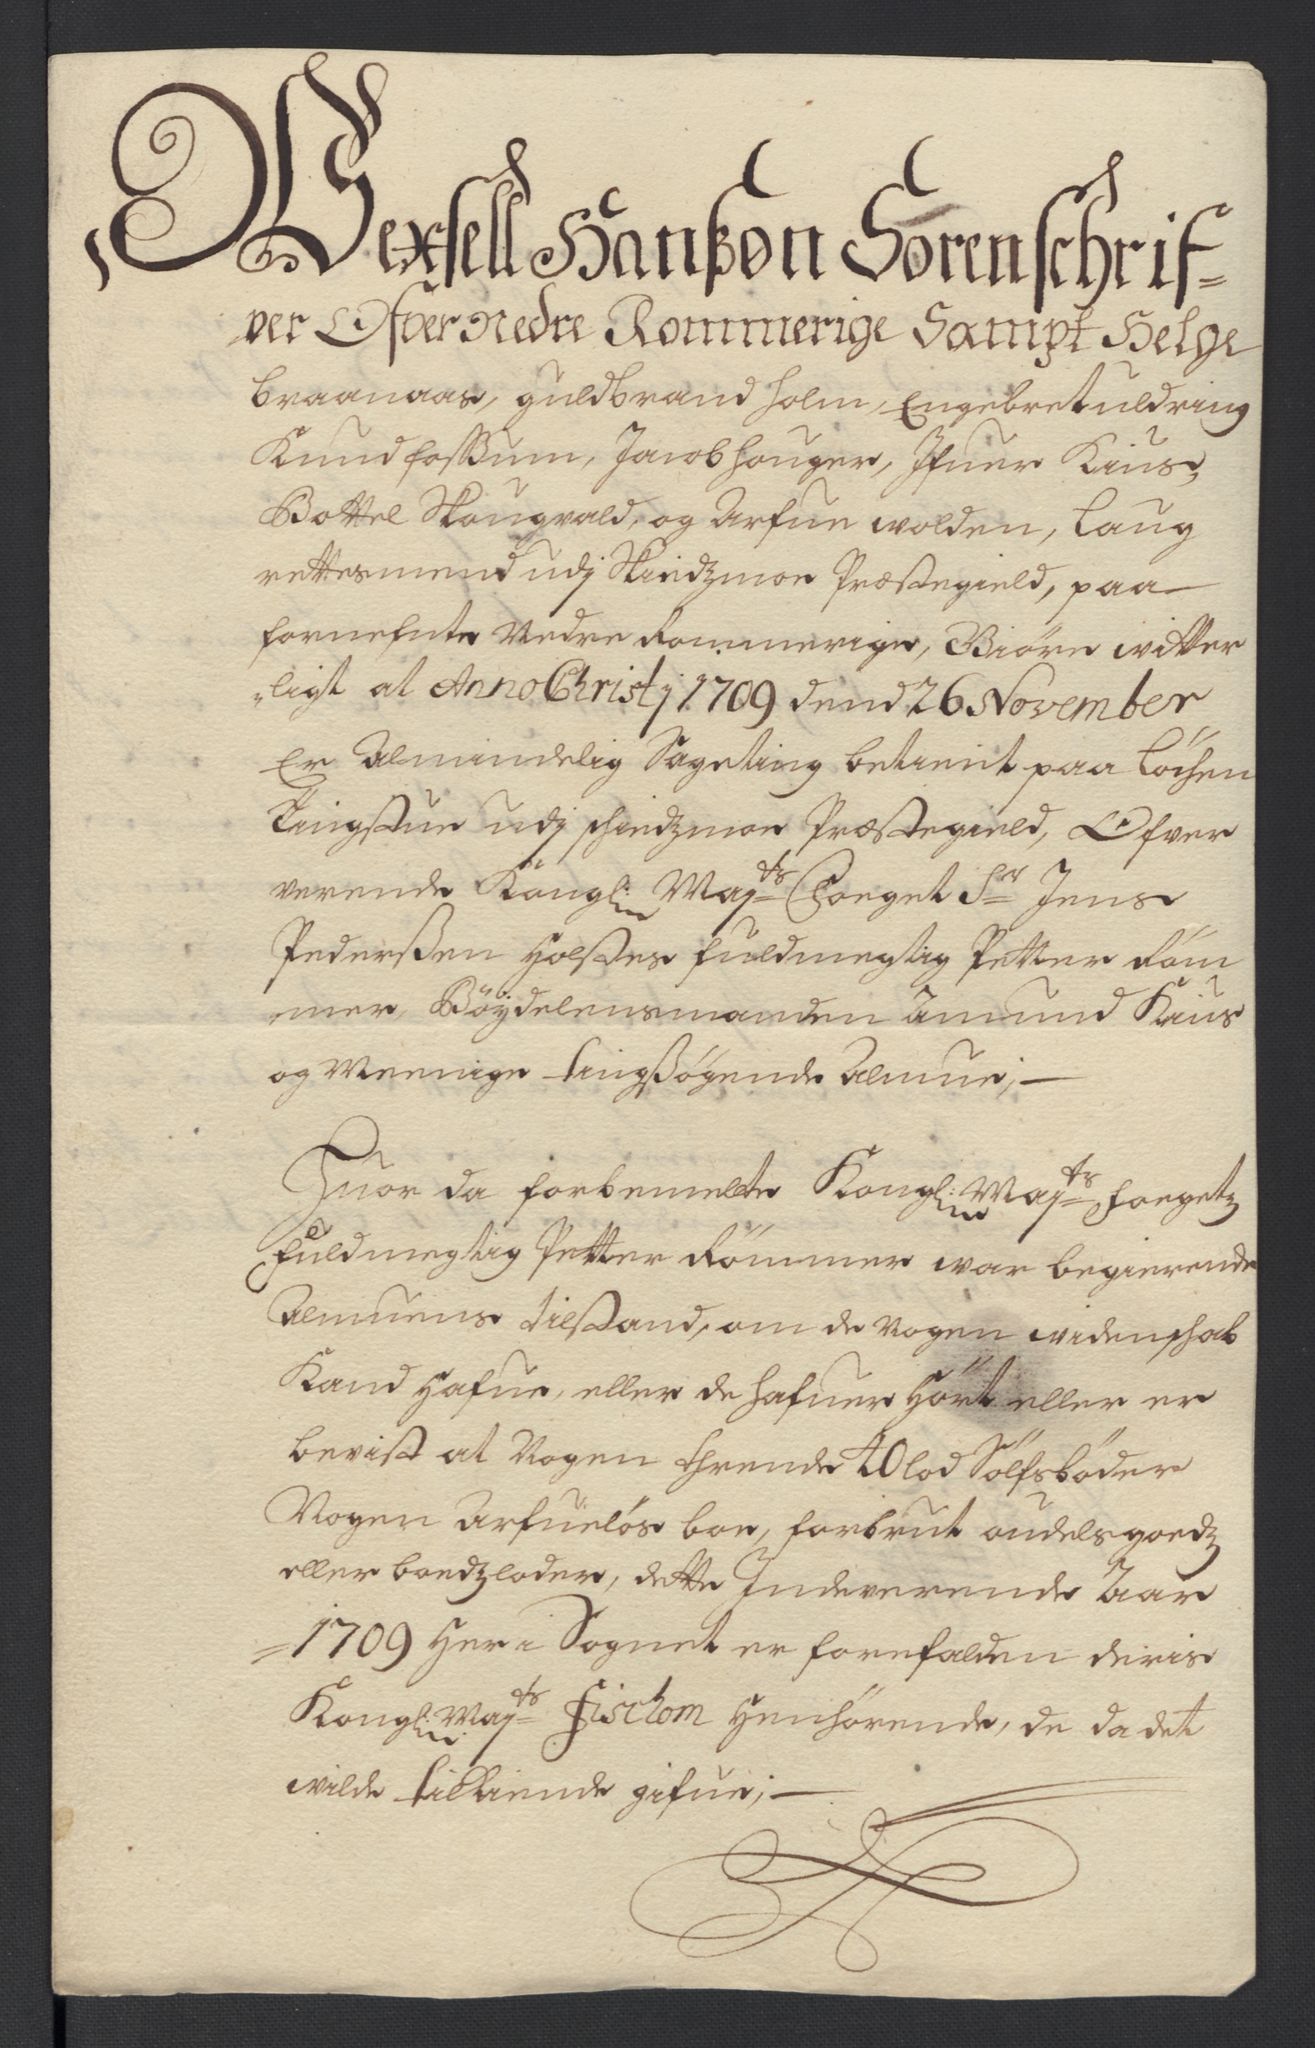 Wexsell Hanßøn Sorenschrif=
ver Ofver Nedre Rommerige Sampt Helge
braanaas, guldbrand holm, Engebret uldring
Knud fossum, Jacob houger, Ifuer Kius,
Bottel Skougvald, og Arfue wolden, Laug
rettesmend udj Skiedzmoe Præstegield, paa
fornefnte Nedre Rommerige, Giøre witter
„ligt at Anno Christj 1709 dend 26 November
Er Almindelig Sageting betient paa Løchen
Tingstue udj schiedzmoe Præstegield, Ofver
verende Kongl: Maj:ts Foeget Sr Jens
Pedersßen Holstes fuldmegtig Petter Røm
mer, Bøydelensmanden Amund Kius
og Meenige tingsøgende Almue;
Huor da forbemelte Kongl: Maj:ts foegetz
fuldmegtig Petter Rømmer war begierende
Almuens tilstand, om de Nogen widenschab
Kand Hafue, eller de hafuer Hørt eller er
bevist at Nogen thrende 40 lod Sølfsbøder
Nogen Arfueløs boe, forbrut oudelsgoedz
eller boedzloder, dette Indeverende Aar
=1709 Her i Sognet er forefalden deris
Kongl: Maj:ts Fischom Henhørende, de da det
wilde tilkiende gifue;